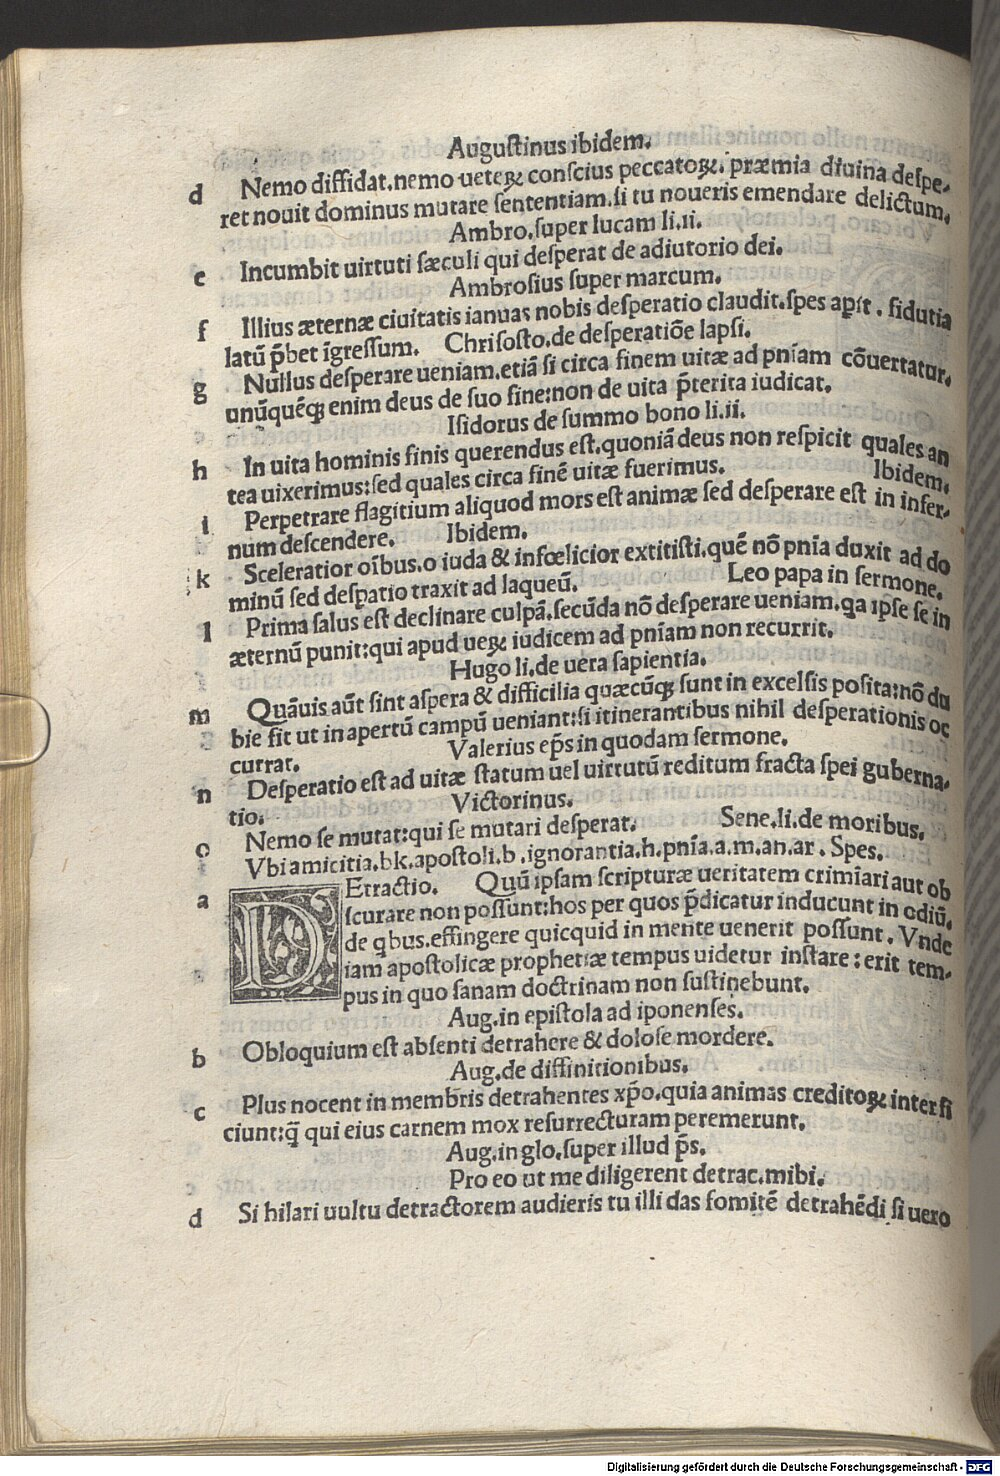 Auguſtinus ibidem.
d Nemo diffidat.nemo ueteꝝ conſcius peccatoꝝ. præmia diuina deſpe-
ret nouit dominus mutare ſententiam.ſi tu noueris emendare delictum.
Ambro.ſuper lucam li.ii.
e Incumbit uirtuti ſæculi qui deſperat de adiutorio dei.
Ambroſius ſuper marcum.
f Illius æternæ ciuitatis ianuas nobis deſperatio claudit.ſpes apit . fidutia
latū p̄bet īgreſſum. Chriſoſto.de deſperatiōe lapſi.
g Nullus deſperare ueniam.etiā ſi circa finem uitæ ad pnīam cōuertatur.
unūquēqꝫ enim deus de ſuo fine:non de uita p̄terita iudicat.
Iſidorus de ſummo bono li.ii.
h In uita hominis finis querendus eſt.quoniā deus non reſpicit quales an
tea uixerimus:ſed quales circa finē uitæ fuerimus. Ibidem.
i Perpetrare flagitium aliquod mors eſt animæ ſed deſperare eſt in infer-
num deſcendere. Ibidem.
k Sceleratior oībus.o iuda & infœlicior extitiſti.quē nō pnīa duxit ad do
minū ſed deſpatio traxit ad laqueū. Leo papa in ſermone.
l Prima ſalus eſt declinare culpā.ſecūda nō deſperare ueniam.qa ipſe ſe in
æternū punit:qui apud ueꝝ iudicem ad pnīam non recurrit.
Hugo li.de uera ſapientia.
m Quāuis aūt ſint aſpera & difficilia quæcūqꝫ ſunt in excelſis poſita:nō du
bie fit ut in apertū campū ueniant:ſi itinerantibus nihil deſperationis oc
currat. Valerius ep̄s in quodam ſermone.
n Deſperatio eſt ad uitæ ſtatum uel uirtutū reditum fracta ſpei guberna-
tio. Victorinus.
o Nemo ſe mutat:qui ſe mutari deſperat. Sene.li.de moribus.
Vbi amicitia.b k.apoſtoli.b .ignorantia.h.pnīa.a.m.an.ar . Spes.
a DEtractio. Quū ipſam ſcripturæ ueritatem crimīari aut ob
ſcurare non poſſunt:hos per quos p̄dicatur inducunt in odiū.
de qbus.effingere quicquid in mente uenerit poſſunt . Vnde
iam apoſtolicæ prophetiæ tempus uidetur inſtare : erit tem-
pus in quo ſanam doctrinam non ſuſtinebunt.
Aug.in epiſtola ad iponenſes.
b Obloquium eſt abſenti detrahere & doloſe mordere.
Aug.de diffinitionibus.
c Plus nocent in membris detrahentes xp̄o.quia animas creditoꝝ interfi
ciunt:q̄ qui eius carnem mox reſurrecturam peremerunt.
Aug.in glo.ſuper illud p̄s.
Pro eo ut me diligerent detrac.mihi.
d Si hilari uultu detractorem audieris tu illi das fomitē detrahēdi ſi uero
Digitalisierung gefördert durch die Deutsche Forschungsgemeinschaft - DFG